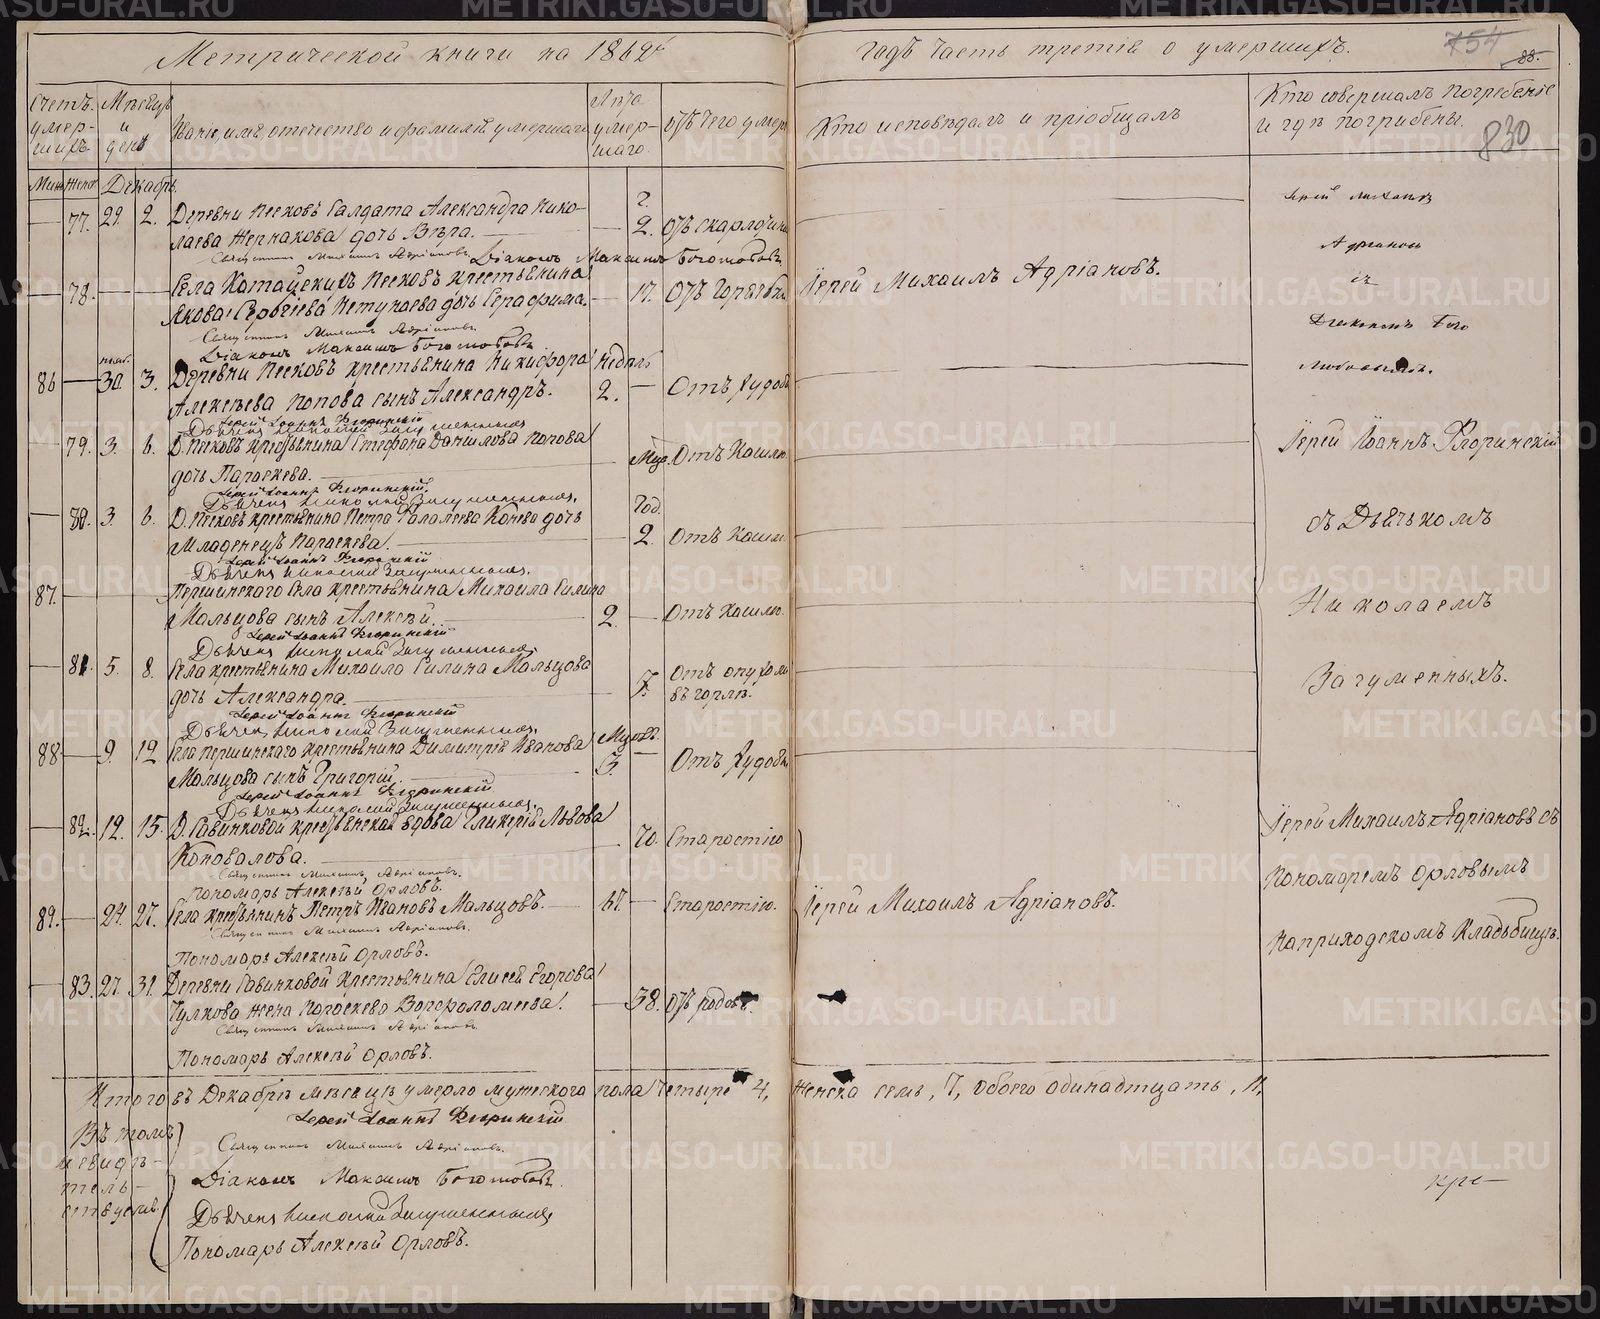 Метрической книги на 1862й годъ часть третія о умершихъ.
754
88.
830
Счетъ умер-
шихъ.
Мѣсяцъ
и
день
Званіе, имя, отечество и фамилія умершаго
Лѣта
умер-
шаго.
Отъ чего умеръ
Кто исповѣдалъ и пріобщалъ
Кто совершалъ погребеніе
и гдѣ погребены.
Муж. Жен. Декабрь.
77. 29. 2. Деревни Песковъ Салдата Александра Нико-
лаева Жернакова дочь Вѣра. 2. Отъ скарлотины
Священникъ Михаилъ Адріановъ Діаконъ Максимъ Боголюбовъ
78. Села Катайскихъ Песковъ крестьянина
Якова Сергіева Петунаева дочь Серафима. 17. Отъ горячки
Іерей Михаилъ Адріановъ.
Священникъ Михаилъ Адріановъ
Діаконъ Максимъ Боголюбовъ
Іерей Михаилъ
Адріановъ
съ
Діакономъ Бого
любовымъ.
86 30 3. Деревни Песковъ крестьянина Никифора недѣль
Алексѣева Попова сынъ Александръ. 2. Отъ худобы
Іерей Іоаннъ Флоринскій
79. 3. 6. Д. Песковъ крестьянина Стефана Данилова Попова
дочь Параскева. Отъ кашлю
Іерей Іоаннъ Флоринскій.
80. 3. 6. Д. Песковъ крестьянина Петра Фалалеева Конева дочь
Младенецъ Параскева. Год. 2. Отъ кашлю
Іерей Іоаннъ Флоринскій
87. Першинского села крестьянина Михаила Силина
Мальцова сынъ Алексѣй. 2. Отъ кашлю.
Іерей Іоаннъ Флоринскій
81. 5. 8. Села крестьянина Михаила Силина Мальцова
дочь Александра. 7. Отъ опухоли
въ горлѣ.
Іерей Іоаннъ Флоринскій
88 9. 12 Села Першинского крестьянина Димитрія Иванова
Мальцова сынъ Григорій. 3. Отъ худобы
Іерей Іоаннъ Флоринскій
Іерей Іоаннъ Флоринскій
съ Дьячькомъ
Николаемъ
Загуменныхъ.
82. 12. 15. Д. Савинковой крестьянская вдова Гликерія Львова
Коновалова. 70. Старостію
Священникъ Михаилъ Адріановъ.
Пономарь Алексѣй Орловъ.
89. 24. 27. Села крестьянинъ Петръ Ивановъ Мальцовъ. 67. Старостію.
Іерей Михаилъ Адріановъ.
Священникъ Михаилъ Адріановъ.
Пономарь Алексѣй Орловъ.
83. 27. 31. Деревни Савинковой крестьянина Елисея Егорова
Чулкова жена Параскева Ворфоломеева. 38. Отъ родовъ.
Священникъ Михаилъ Адріановъ.
Пономарь Алексѣй Орловъ.
Іерей Михаилъ Адріановъ съ
Пономаремъ Орловымъ
на приходскомъ кладьбищѣ.
Итого въ Декабрѣ мѣсяцѣ умерло мужеского пола четыре 4, женска семь, 7, обоего одинадтцать, 11,
Іерей Іоаннъ Флоринскій
Священникъ Михаилъ Адріановъ.
Въ томъ
свидѣ-
тель-
ствуемъ
Діаконъ Максимъ Боголюбовъ.
Дьячекъ Николай Загуменныхъ
Пономарь Алексѣй Орловъ.
METRIKI.GASO-URAL.RU